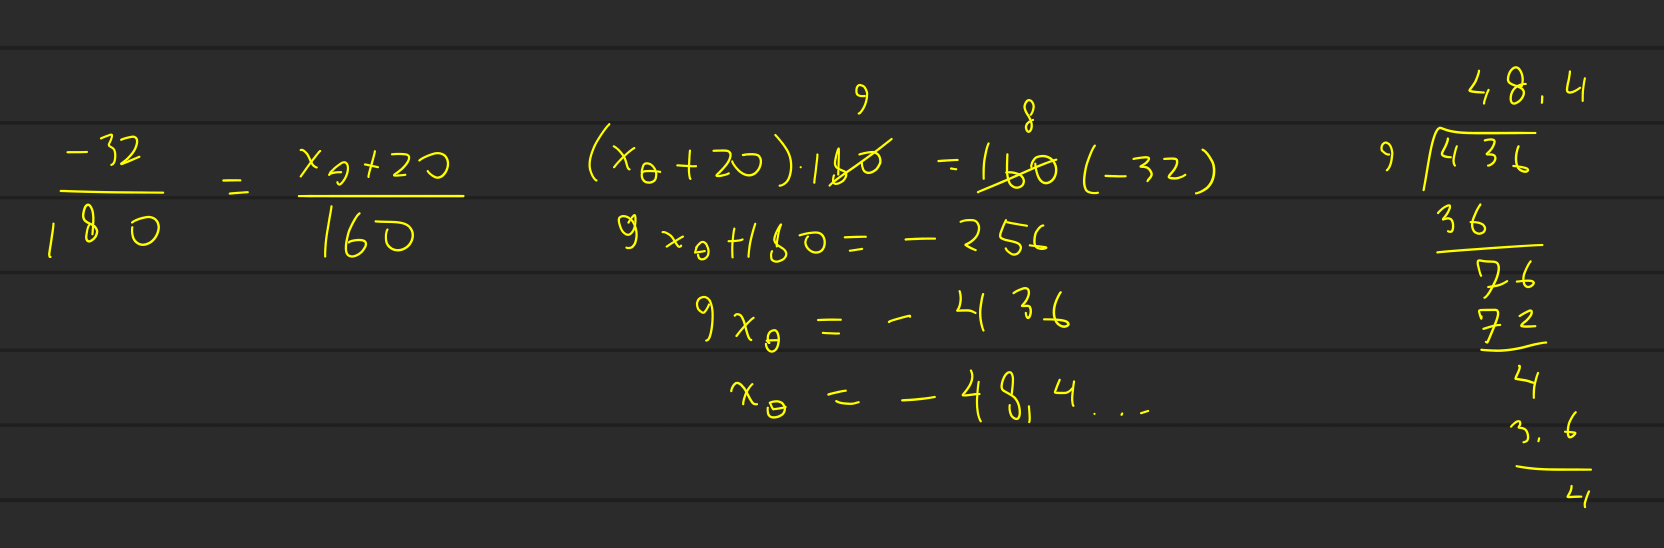 -32/180 = (xθ+20)/160
(xθ+20)·180 = 160(-32)
9 8
9xθ+180 = -256
9xθ = -436
xθ = -48,4...
48.4
9 436
36
76
72
4
3.6
4